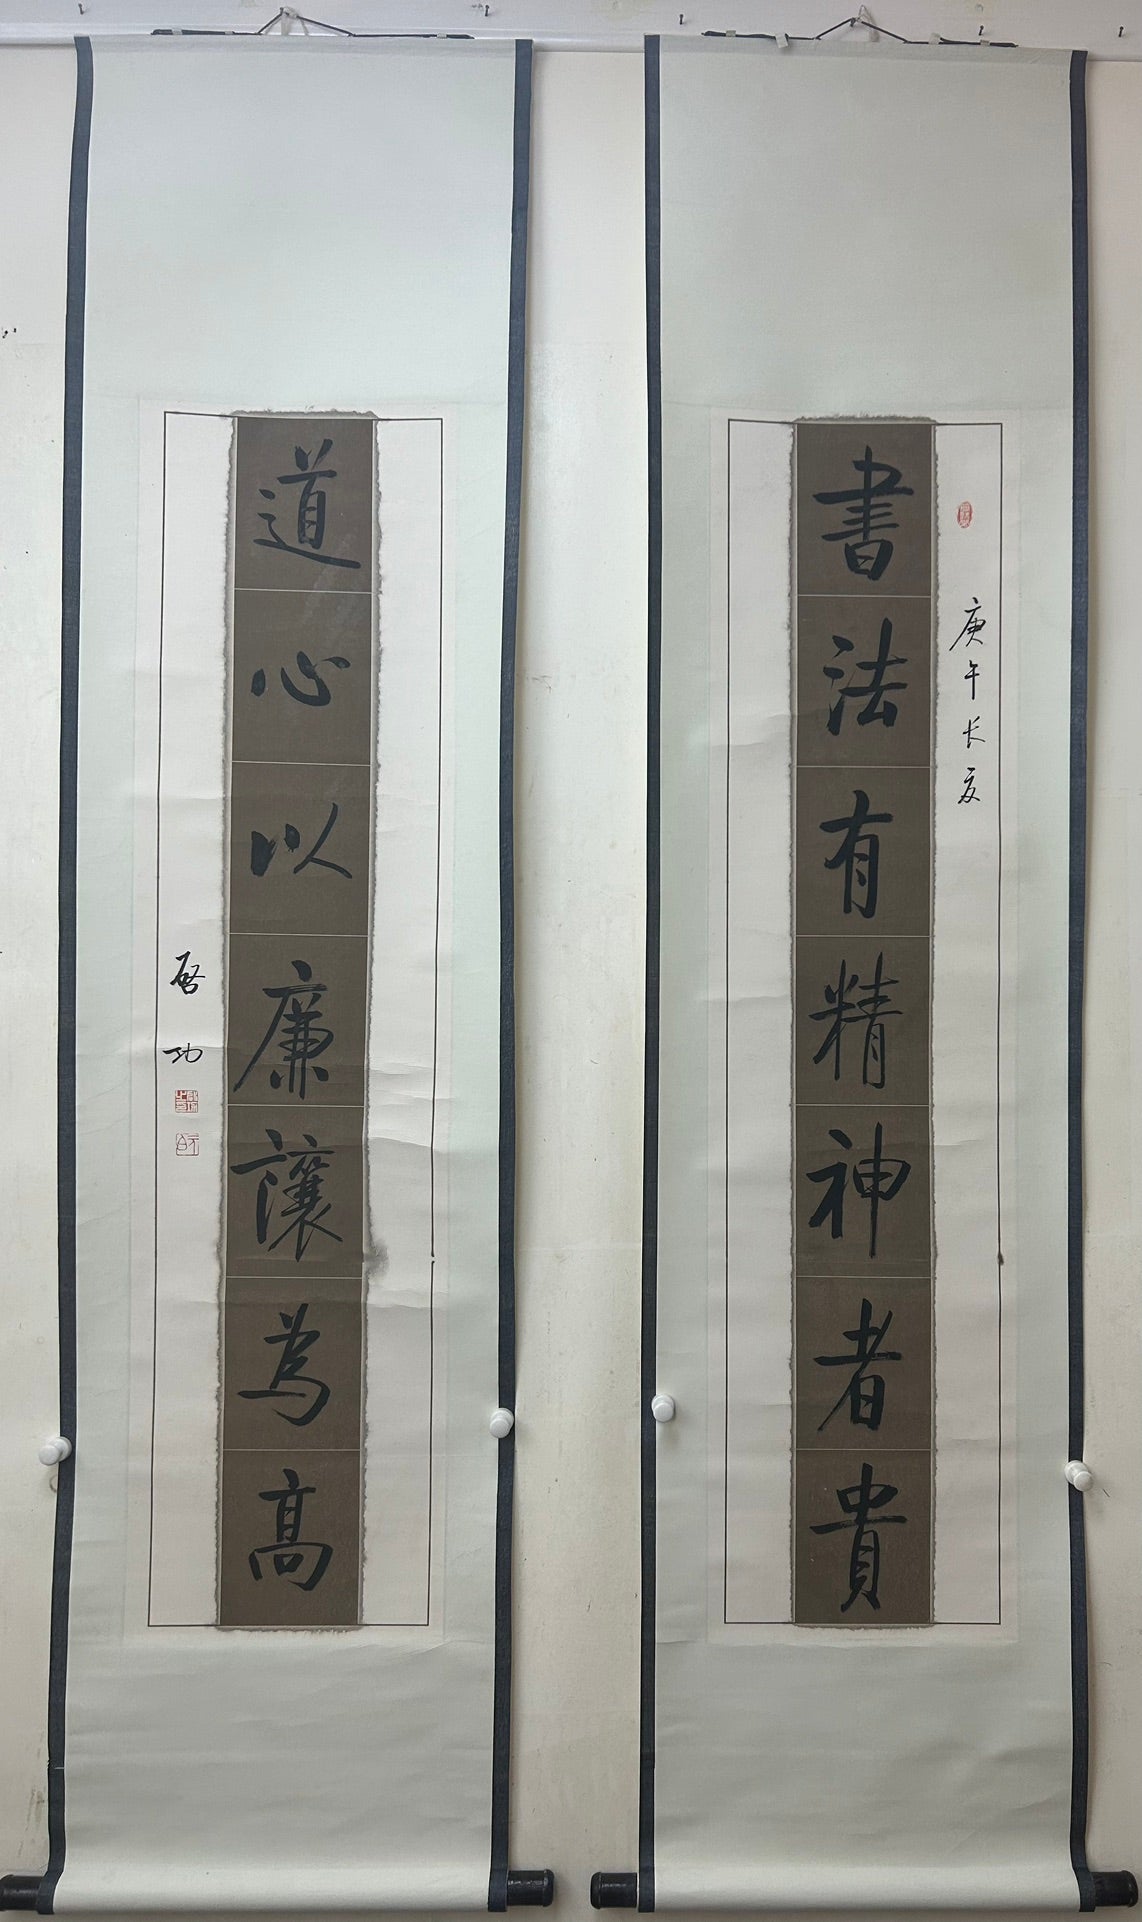 書法有精神者貴
庚午長夏
道心以廉讓為高
啓功